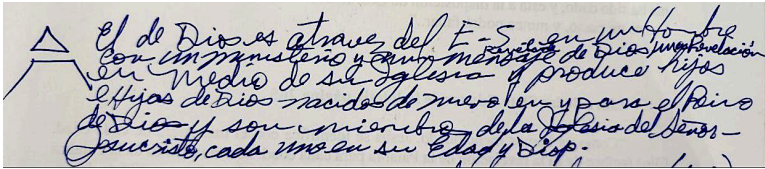 El de Dios es atravez del E-S en un Hombre
con un ministerio y un mensaje Revelado de Dios, una Revelación
en medio de su Iglesia y produce hijos
e Hijas de Dios nacidos de nuevo en y para el Reino
de Dios y son miembro de la Iglesia del Señor
Jesucristo, cada uno en su Edad y Disp.